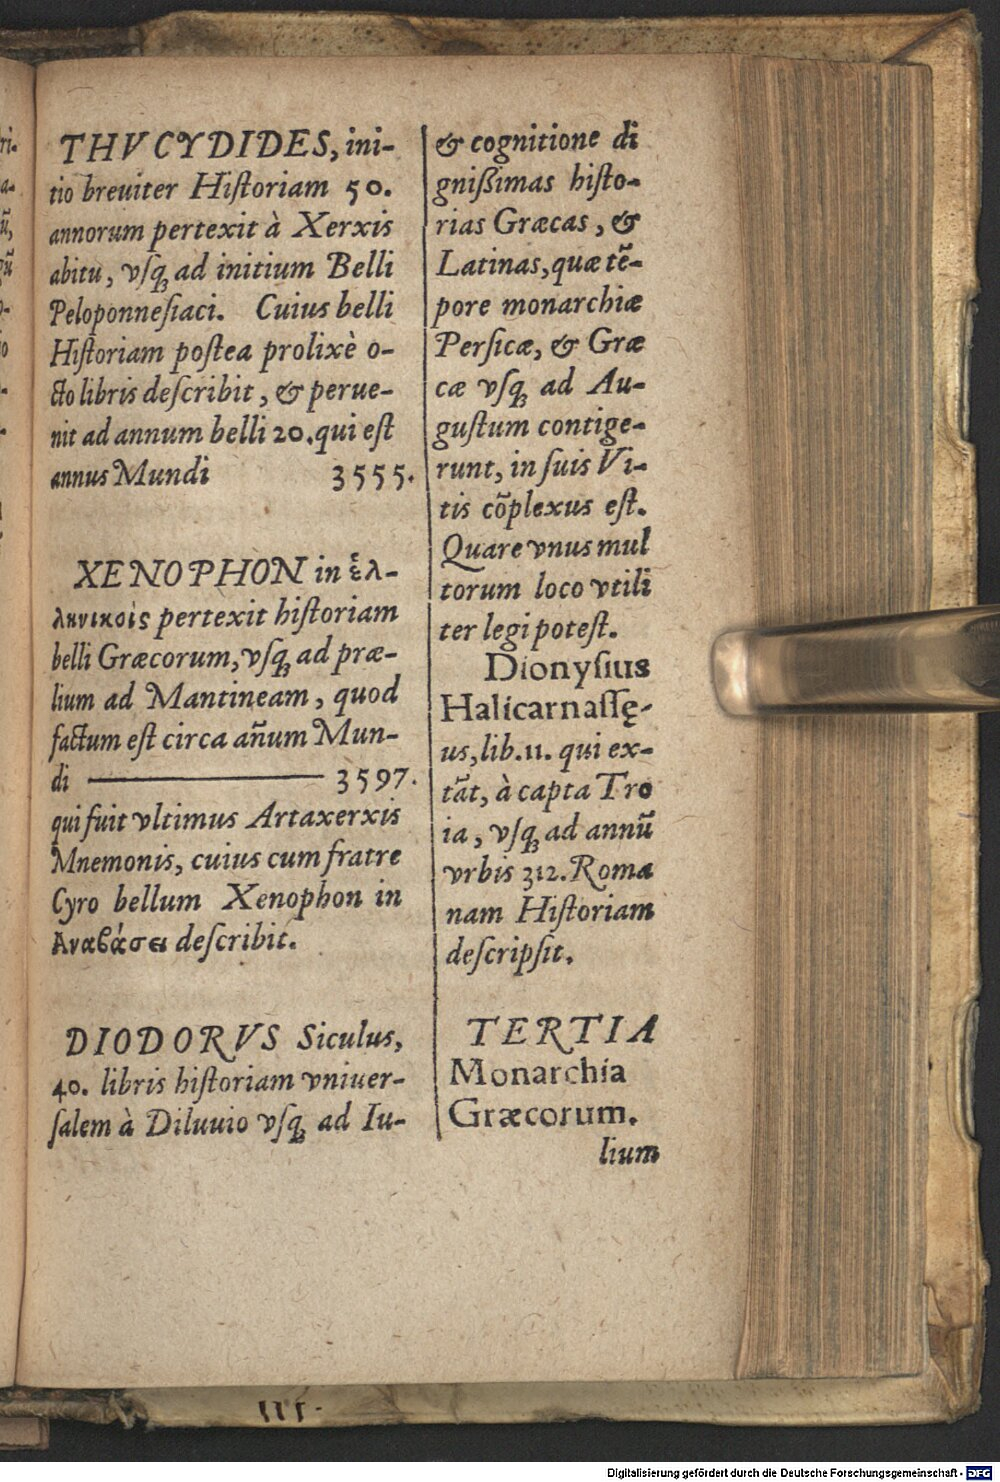 THVCYDIDES, ini-
tio breuiter Hiſtoriam 50.
annorum pertexit à Xerxis
abitu, vſq; ad initium Belli
Peloponneſiaci. Cuius belli
Hiſtoriam poſtea prolixè o-
cto libris deſcribit, & perue-
nit ad annum belli 20. qui eſt
annus Mundi 3555.
XENOPHON in ἑλ-
ληνικοῖς pertexit hiſtoriam
belli Græcorum, vſq; ad præ-
lium ad Mantineam, quod
factum eſt circa añum Mun-
di 3597.
qui fuit vltimus Artaxerxis
Mnemonis, cuius cum fratre
Cyro bellum Xenophon in
Ἀναβάσει deſcribit.
DIODORVS Siculus,
40. libris hiſtoriam vniuer-
ſalem à Diluuio vſq; ad Iu-
& cognitione di
gnißimas hiſto-
rias Græcas, &
Latinas, quæ tẽ-
pore monarchiæ
Perſicæ, & Græ
cæ vſq; ad Au-
guſtum contige-
runt, in ſuis Vi-
tis cõplexus eſt.
Quare vnus mul
torum loco vtili
ter legi poteſt.
Dionyſius
Halicarnaſſę-
us, lib. 11. qui ex-
tãt, à capta Tro
ia, vſq; ad annũ
vrbis 312. Roma
nam Hiſtoriam
deſcripſit.
TERTIA
Monarchia
Græcorum.
lium
Digitalisierung gefördert durch die Deutsche Forschungsgemeinschaft - DFG